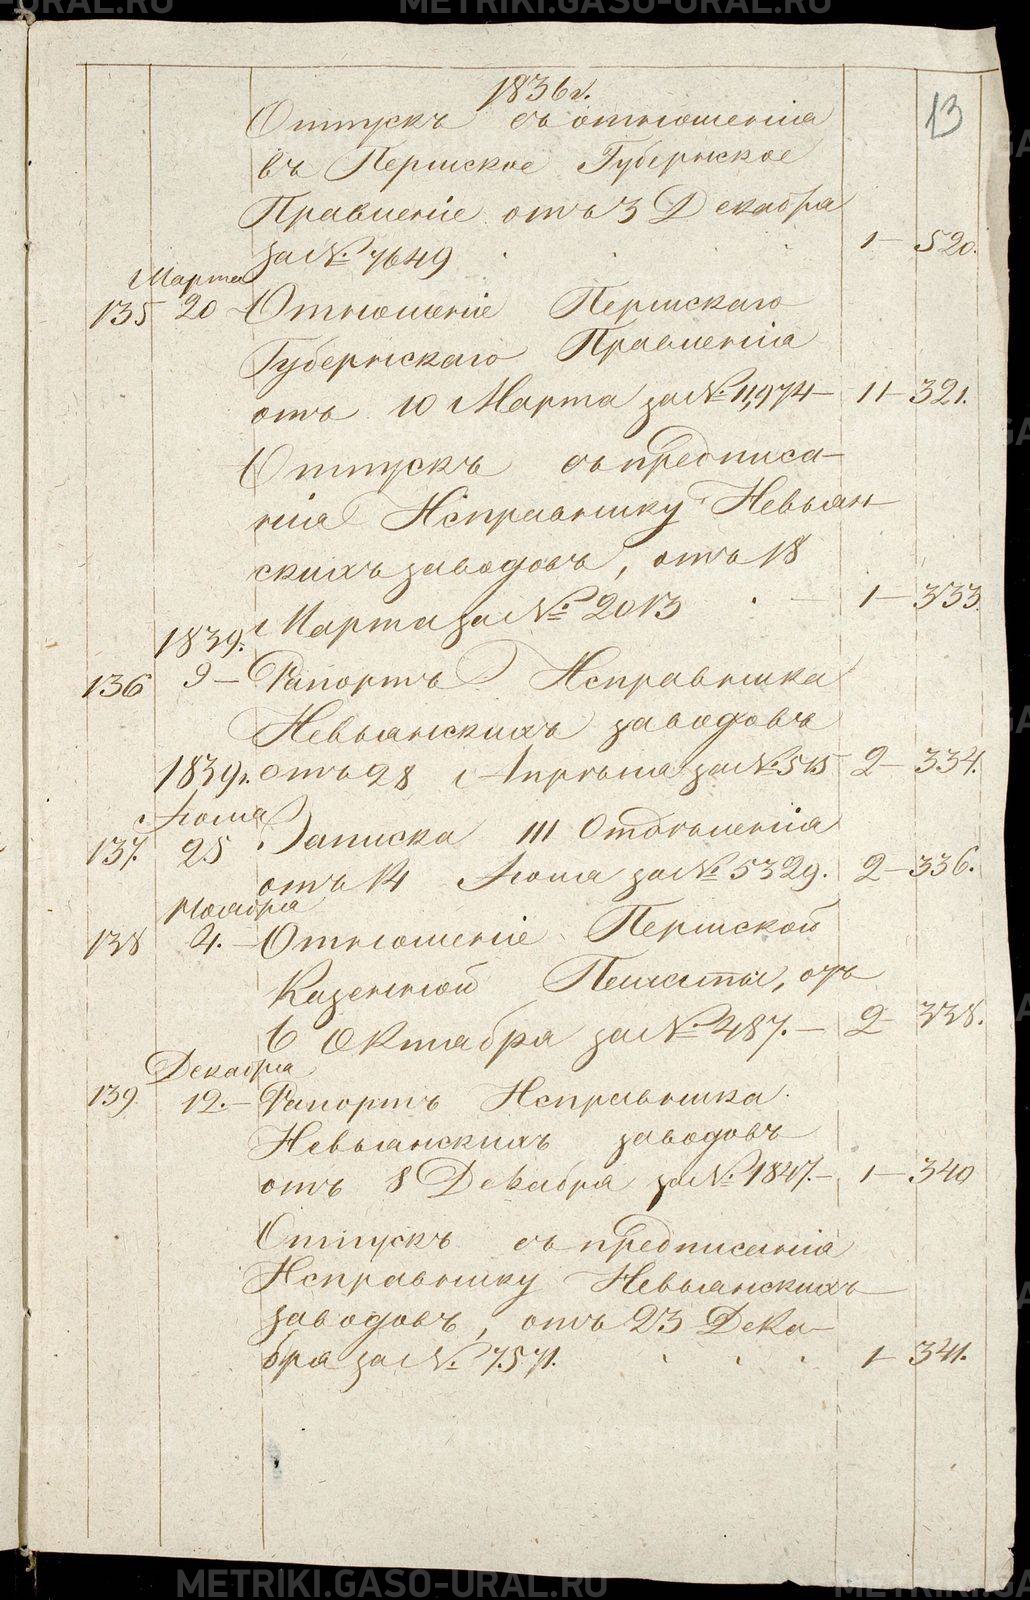 METRIKI.GASO-URAL.RU
1836 г.
13
Отпускъ съ отношенія
въ Пермское Губернское
Правленіе отъ 3 Декабря
за № 7649 1 — 520.
Марта
135 20 — Отношеніе Пермскаго
Губернскаго Правленія
отъ 10 Марта за № 11,974 — 11 — 321.
Отпускъ съ предписа-
нія Исправнику Невьян-
скихъ заводовъ, отъ 18
Марта за № 2013 1 — 333.
1839.
136 9 — Рапортъ Исправника
Невьянскихъ заводовъ
1839 г. отъ 28 Апрѣля за № 515 2 — 334.
Іюля
137. 25 Записка III Отдѣленія
отъ 14 Іюля за № 5329. 2 — 336.
Ноября
138 4. — Отношеніе Пермской
Казенной Палаты, отъ
6 Октября за № 487. — 2 — 338.
Декабря
139 12. — Рапортъ Исправника
Невьянскихъ заводовъ
отъ 8 Декабря за № 1847. — 1 — 340
Отпускъ съ предписанія
Исправнику Невьянскихъ
заводовъ, отъ 23 Дека-
бря за № 7571. 1 — 341.
METRIKI.GASO-URAL.RU